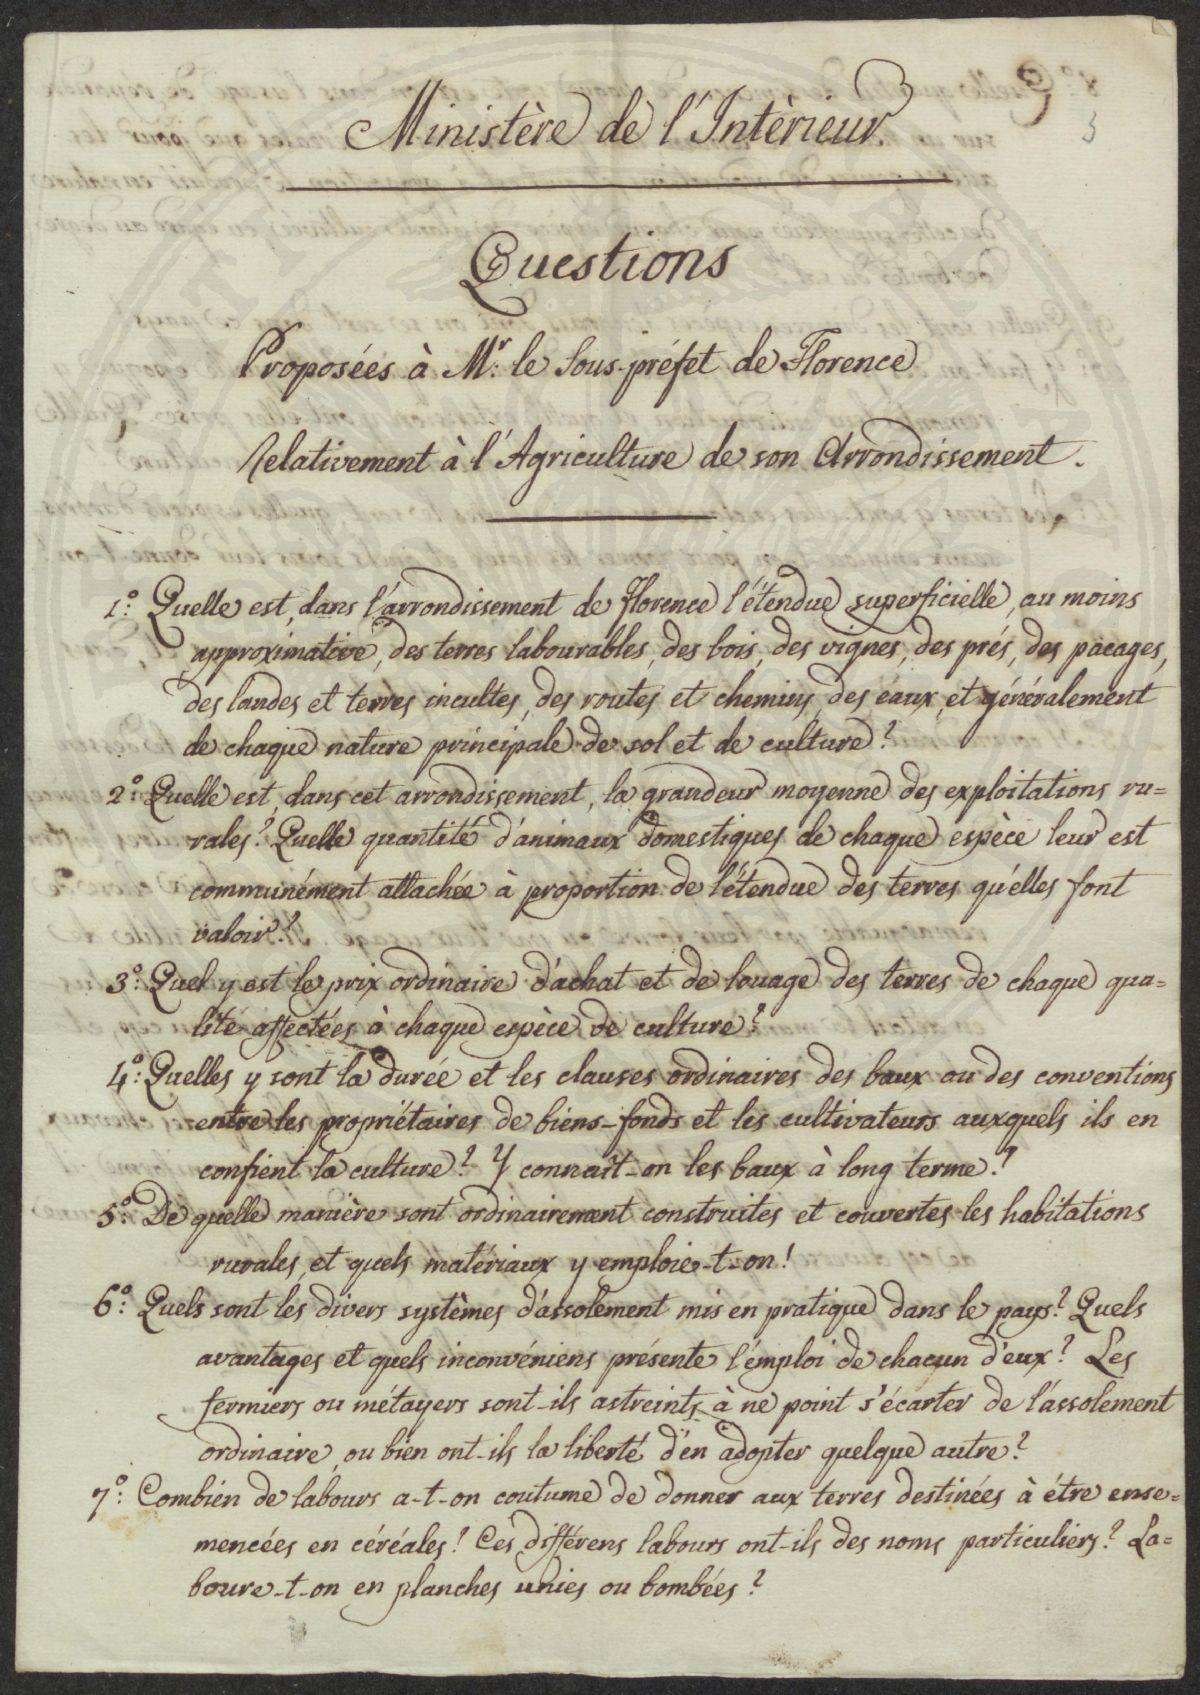 9
3
Ministère de l'Intèrieur
Questions
Proposées à Mr. le Sous-préfet de Florence
Relativement à l'Agriculture de son Arrondissement.
1.° Quelle est, dans l'arrondissement de Florence l'étendue superficielle, au moins
approximative, des terres labourables, des bois, des vignes, des prés, des pacages,
des landes et terres incultes, des routes et chemins, des eaux, et généralement
de chaque nature principale de sol et de culture?
2.° Quelle est, dans cet arrondissement, la grandeur moyenne des exploitations ru=
rales? Quelle quantité d'animaux domestiques de chaque espèce leur est
communément attachée à proportion de l'étendue des terres qu'elles font
valoir?
3.° Quel y est le prix ordinaire d'achat et de louage des terres de chaque qua=
lité affectées à chaque espèce de culture?
4.° Quelles y sont la durée et les clauses ordinaires des baux ou des conventions
entre les propriétaires de biens-fonds et les cultivateurs auxquels ils en
confient la culture? Y connaît-on les baux à long terme?
5.° De quelle manière sont ordinairement construites et couvertes les habitations
rurales, et quels matériaux y emploie-t-on!
6.° Quels sont les divers systèmes d'assolement mis en pratique dans le pays? Quels
avantages et quels inconvéniens présente l'emploi de chacun d'eux? Les
fermiers ou métayers sont-ils astreints à ne point s'écarter de l'assolement
ordinaire, ou bien ont-ils la liberté d'en adopter quelque autre?
7.° Combien de labours a-t-on coutume de donner aux terres destinées à être ense=
mencées en céréales! Ces différens labours ont-ils des noms particuliers? La=
boure-t-on en planches unies ou bombées?